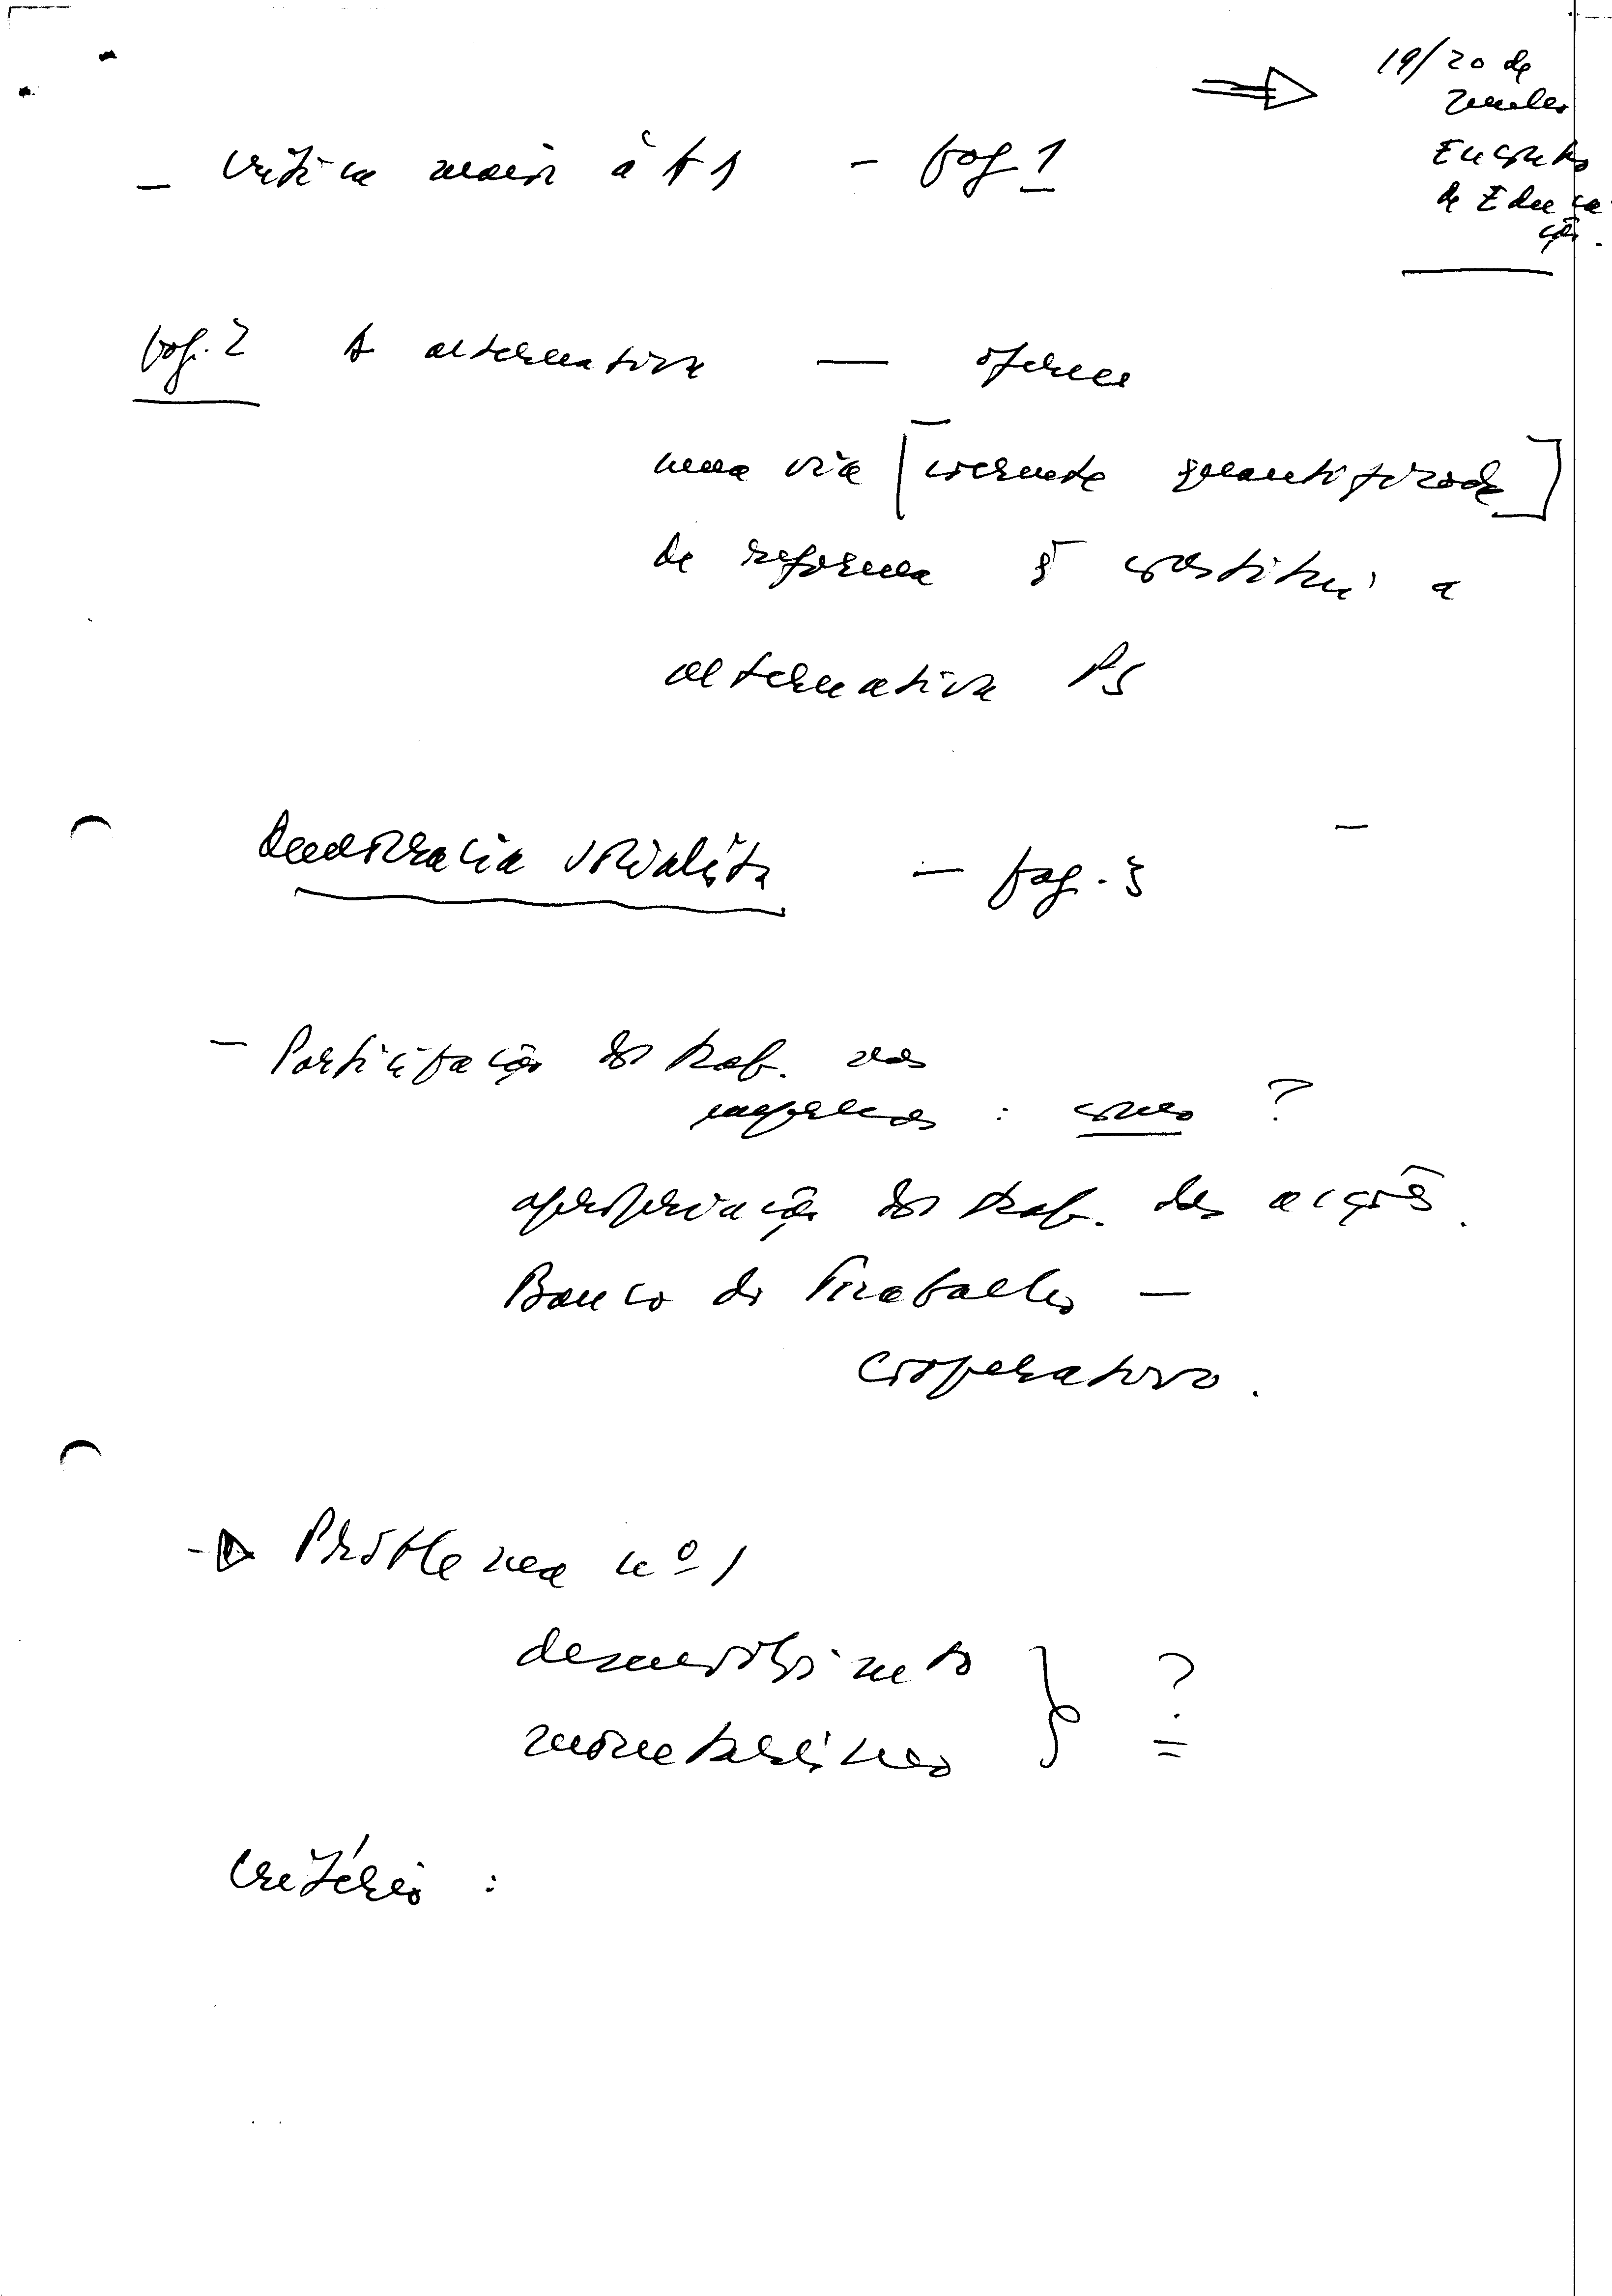 19/20 de
Junho
Encontro
de Educa
ção.
– crítica maior à A1 – pag 1
pag. 2 A alternativa — oferece
uma via [coerente quantificada]
de reforma q constitui a
alternativa PS
Democracia socialista – pag. 3
– Participação dos trab. nas
empresas : como ?
apropriação dos trab. das acções.
Banco do Trabalho –
cooperativo.
→ Problema nº 1
desenvolvimento } ?
monetarismo
critério :